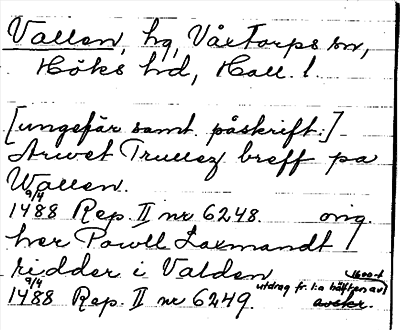 Vallen, hg, Våxtorps sn,
Höks hd, Hall. l.
[ungefär samt. påskrift:]
Arwet Trullez breff pa
Wallen.
9/4
1488 Rep. II nr 6248. orig.
her Powell Laxmandt
ridder i Valden
9/4
1488 Rep. II nr 6249. utdrag fr. 1:a hälften av 1600-t
avskr.